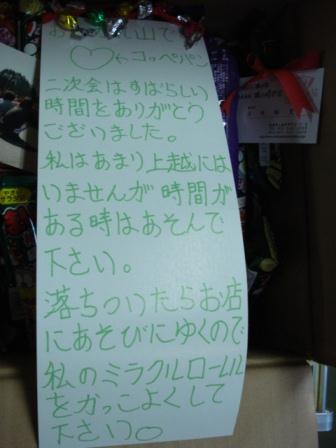 い山で
♡←コッペパン
二次会はすばらしい
時間をありがとう
ございました。
私はあまり上越には
いませんが時間が
ある時はあそんで
下さい。
落ちついたらお店
にあそびにゆくので
私のミラクルロールル
をかっこよくして
下さい。